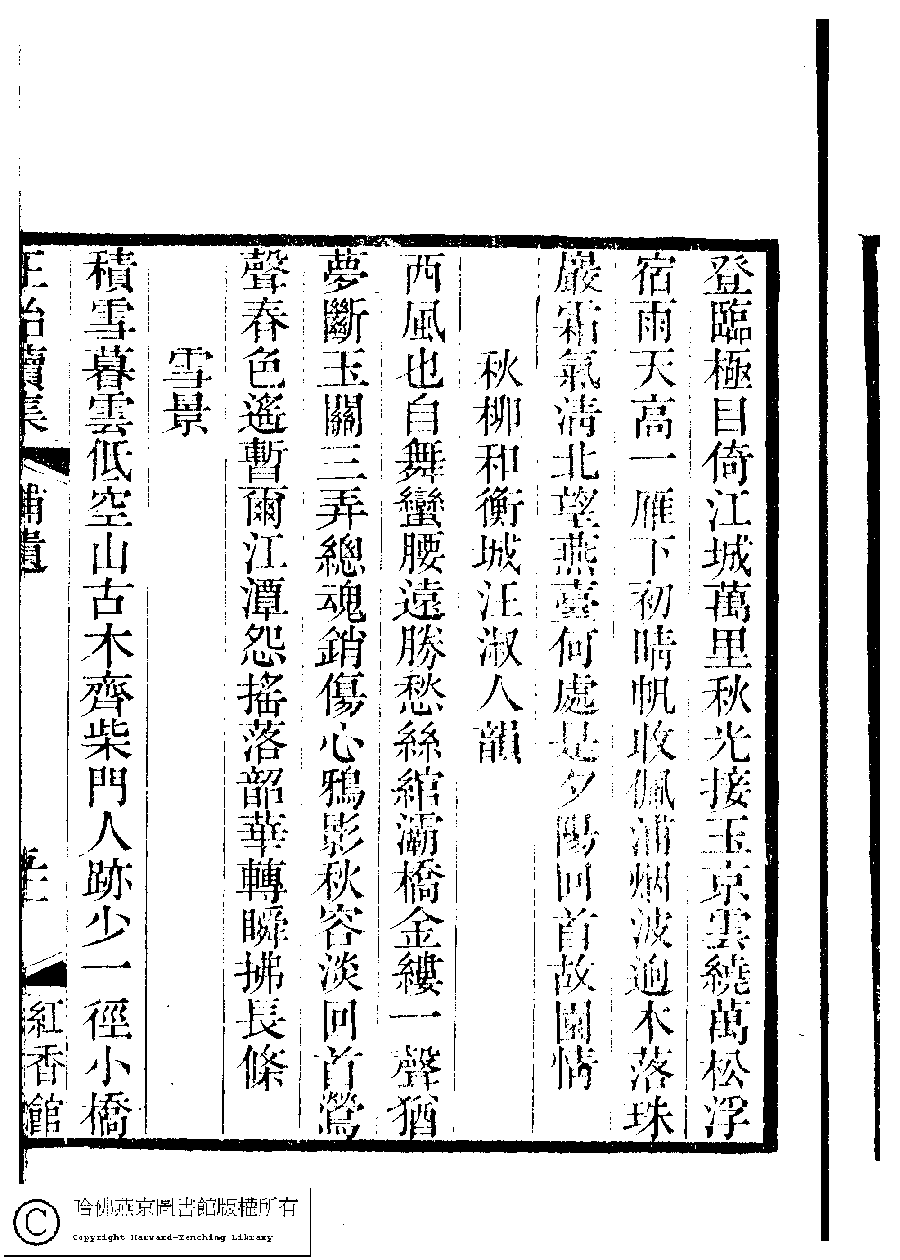 登臨極目倚江城萬里秋光接玉京雲繞萬松浮
宿雨天高一雁下初晴帆收佩浦烟波逈木落珠
巖霜氣清北望燕臺何處是夕陽回首故園情
秋柳和衡城汪淑人韻
西風也自舞蠻腰遠勝愁絲綰灞橋金縷一聲猶
夢斷玉關三弄總魂銷傷心鴉影秋容淡回首鶯
聲春色遙暫爾江潭怨搖落韶華轉瞬拂長條
雪景
積雪暮雲低空山古木齊柴門人跡少一徑小橋
正始續集
補遺
紅香館
哈佛燕京圖書館版權所有
Copyright Harvard-Yenching Library